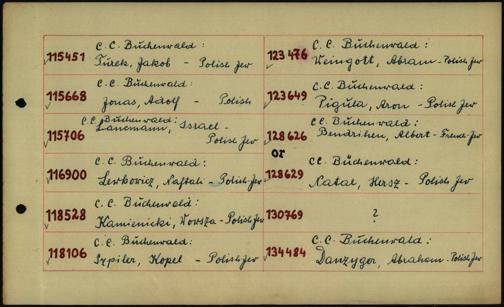 115451 C.C. Buchenwald:
Turek, Jakob - Polish Jew
115668 C.C. Buchenwald:
Jonas, Adolf - Polish
115706 C.C. Buchenwald:
Landmann, Israel -
Polish Jew
116900 C.C. Buchenwald:
Lerkowicz, Naftali - Polish Jew
118528 C.C. Buchenwald:
Kamienicki, Wowsza - Polish Jew
118106 C.C. Buchenwald:
Szpiler, Kopel - Polish Jew
123476 C.C. Buchenwald:
Weingott, Abram - Polish Jew
123649 C.C. Buchenwald:
Pigula, Aron - Polish Jew
128626 C.C. Buchenwald:
Bendrihen, Albert - French Jew
or
128629 CC. Buchenwald:
Natal, Hersz - Polish Jew
130769 ?
134484 C.C. Buchenwald:
Danzyger, Abraham - Polish Jew